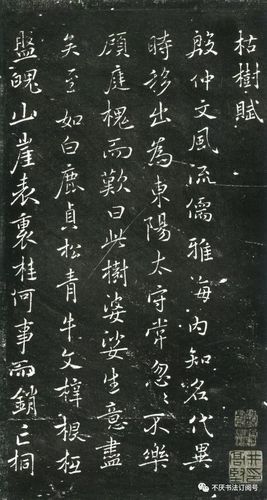 枯樹賦
殷仲文風流儒雅海內知名代異
時移出為東陽太守常忽〻不樂
顧庭槐而歎曰此樹婆娑生意盡
矣至如白鹿貞松青牛文梓根柢
盤魄山崖表裏桂何事而銷亡桐
不厌书法订阅号